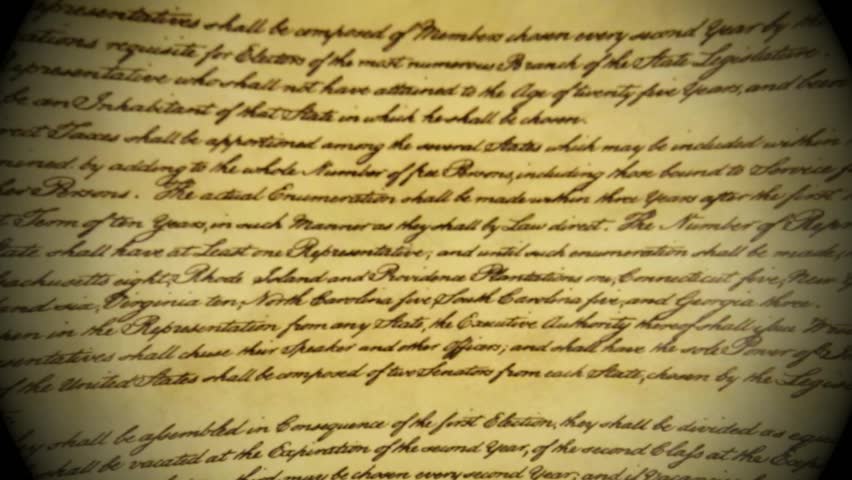 Representatives shall be composed of Members chosen every second Year by the
ations requisite for Electors of the most numerous Branch of the State Legislature.
Representative who shall not have attained to the Age of twenty five Years, and been
be an Inhabitant of that State in which he shall be chosen.
rect Taxes shall be apportioned among the several States which may be included within
mined by adding to the whole Number of free Persons, including those bound to Service f
her Persons. The actual Enumeration shall be made within three Years after the first
t Term of ten Years, in such Manner as they shall by Law direct. The Number of Repre
tate shall have at Least one Representative; and until such enumeration shall be made,
sachusetts eight, Rhode Island and Providence Plantations one, Connecticut five, New
land six, Virginia ten, North Carolina five South Carolina five, and Georgia three.
pen in the Representation from any State, the Executive Authority thereof shall issue Writ
sentatives shall chuse their Speaker and other Officers; and shall have the sole Power of I
f the United States shall be composed of two Senators from each State, chosen by the Legis
hey shall be assembled in Consequence of the first Election, they shall be divided as equa
shall be vacated at the Expiration of the second Year, of the second Class at the Exp
third may be chosen every second Year; and if Vacancies